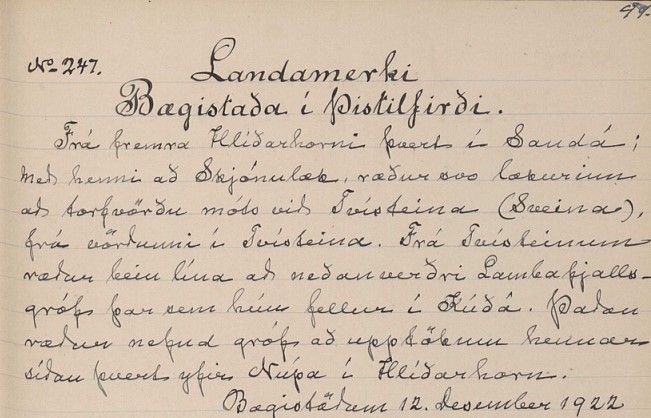 No 247.
Landamerki
Bægistaða í Þistilfirði.
Frá fremra Hlíðarhorni þvert í Sandá;
með henni að Skjónulæk, ræður svo lækurinn
að torfvörðu móts við Tvísteina (Sveina),
frá vörðunni í Tvísteina. Frá Tvísteinum
ræður bein lína að neðanverðri Lambafjalls-
gróf þar sem hún fellur í Kúðá. Þaðan
ræður nefnd gróf að upptökum hennar
síðan þvert yfir Núpa í Hlíðarhorn.
Bægistöðum 12. desember 1922